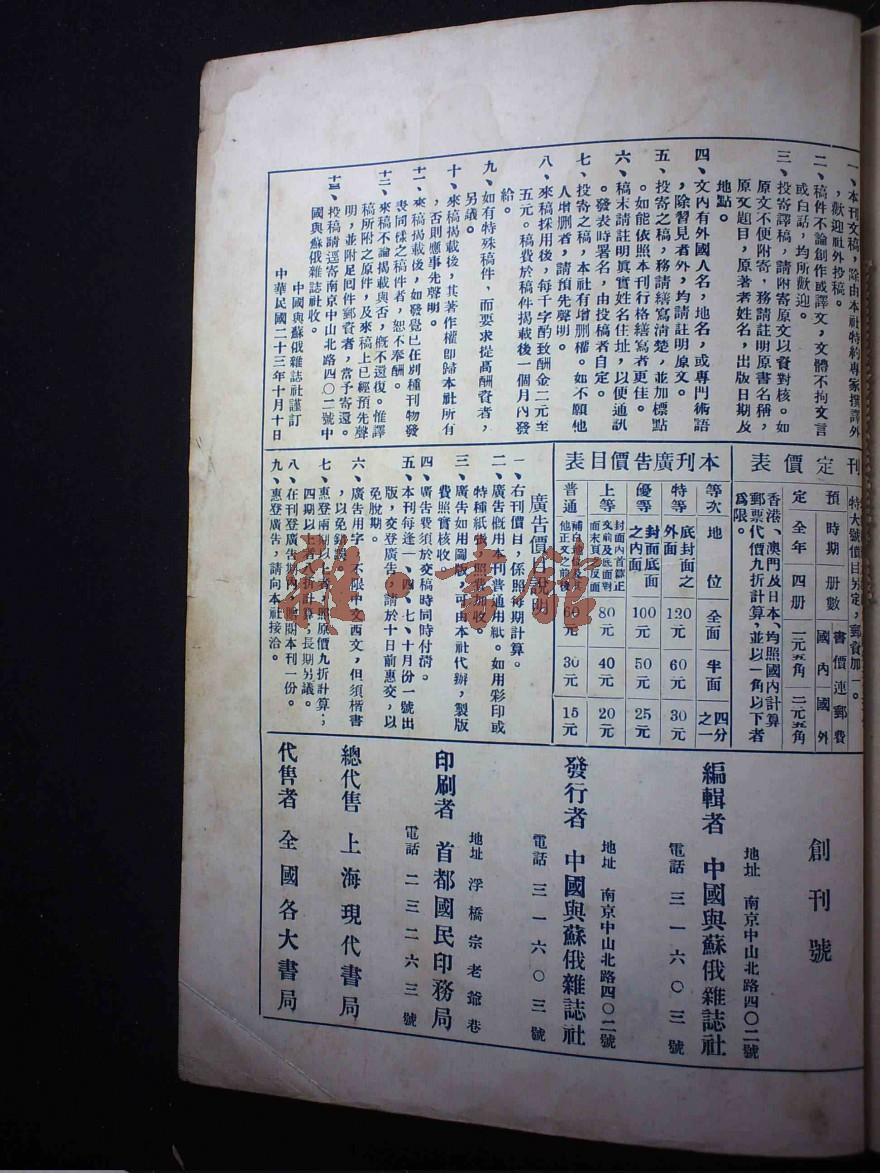 一、本刊文稿，除由本社特約專家撰譯外
，歡迎社外投稿。
二、稿件不論創作或譯文，文體不拘文言
或白話，均所歡迎。
三、投寄譯稿，請附寄原文以資對核。如
原文不便附寄，務請註明原書名稱，
原文題目，原著者姓名，出版日期及
地點。
四、文內有外國人名，地名，或專門術語
，除習見者外，均請註明原文。
五、投寄之稿，務請繕寫清楚，並加標點
。如能依照本刊行格繕寫者更佳。
六、稿末請註明真實姓名住址，以便通訊
。發表時署名，由投稿者自定。
七、投寄之稿，本社有增删權。如不願他
人增删者，請預先聲明。
八、來稿採用後，每千字酌致酬金二元至
五元。稿費於稿件揭載後一個月內發
給。
九、如有特殊稿件，而要求提高酬資者，
另議。
十、來稿揭載後，其著作權即歸本社所有
，否則應事先聲明。
十一、來稿揭載後，如發覺已在別種刊物發
表同樣之稿件者，恕不奉酬。
十二、來稿不論揭載與否，概不還復。惟譯
稿所附之原件，及來稿上已經預先聲
明，並附足囘件郵資者，當予寄還。
十三、投稿請逕寄南京中山北路四〇二號中
國與蘇俄雜誌社收。
中國與蘇俄雜誌社謹訂
中華民國二十三年十月十日
刊定價表
預定
時期 册數 書價連郵費
國內 國外
全年 四册 二元五角
特大號價目另定，郵費加一。
香港、澳門及日本、均照國內計算
郵票代價九折計算，並以一角以下者
爲限。
本刊廣告價目表
等次 地位 全面 半面 四分之一
特等 底封面之外面 120元 60元 30元
優等 封面底面之內面 100元 50元 25元
上等 封面內首篇正文前及底面對面末頁之反面 80元 40元 20元
普通 補白地位及正文他正文之前後 60元 30元 15元
廣告價目說明
一、右刊價目，係照每期計算。
二、廣告概用本刊普通用紙。如用彩印或
特種紙張，照費加收。
三、廣告如用圖版，可由本社代辦，製版
費照實核收。
四、廣告費須於交稿時同時付清。
五、本刊每逢一、四、七、十月份一號出
版，交登廣告，請於十日前惠交，以
免脫期。
六、廣告用字，不限中文西文，但須楷書
，以免錯誤。
七、惠登兩期以上者，照原價九折計算；
四期以上者八折計算；長期另議。
八、在刊登廣告期內，贈閱本刊一份。
九、惠登廣告，請向本社接洽。
創刊號
編輯者 中國與蘇俄雜誌社
地址 南京中山北路四〇二號
電話 三一六〇三號
發行者 中國與蘇俄雜誌社
地址 南京中山北路四〇二號
電話 三一六〇三號
印刷者 首都國民印務局
地址 浮橋宗老爺巷
電話 二三二六三號
總代售 上海現代書局
代售者 全國各大書局